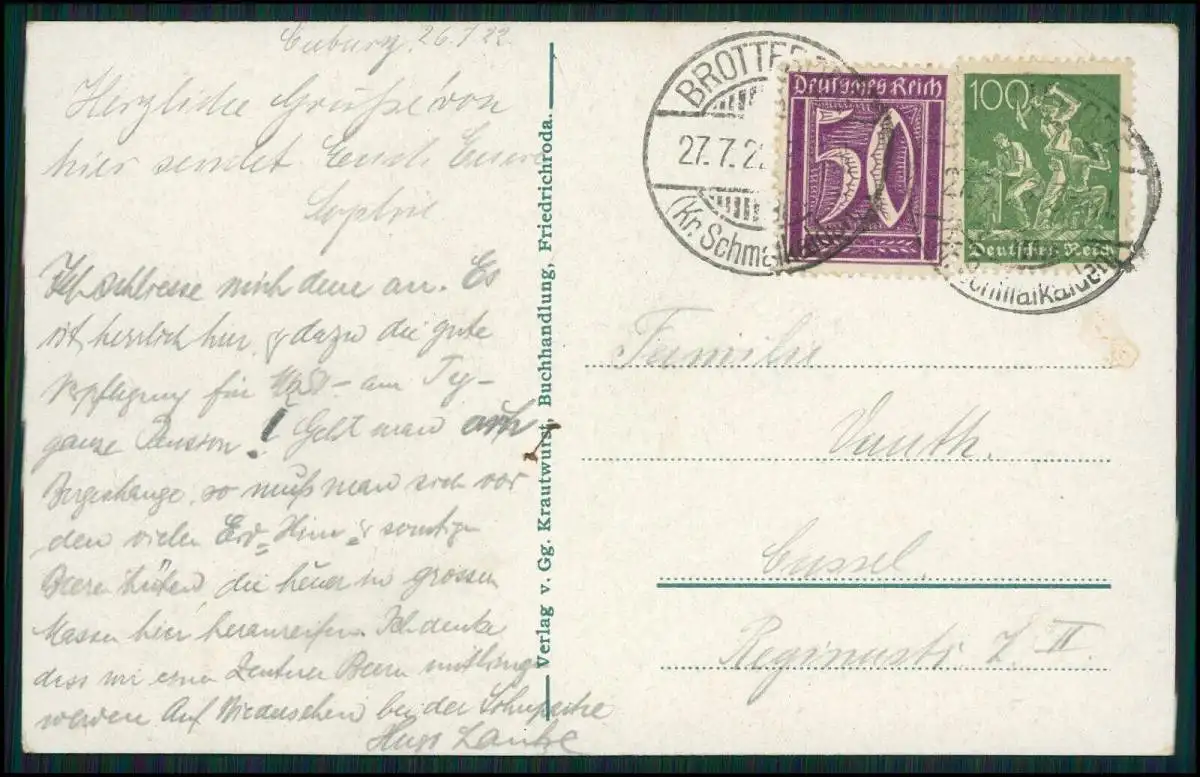 26.7.22
Herzliche Grüße von
hier sendet Euch Eure
Sophie
Ich schliesse mich dem an. Es
ist herrlich hier & dazu die gute
Verpflegung für am Tg
ganze Pension! Geht man am
Bergeshange, so muß man sich vor
den vielen Erd= Him= & sonstigen
Beeren hüten die heuer in grossen
Massen hier heranreifen. Ich denke
dass wir einen Zentner Beeren mitbringen
werden Auf Wiedersehen bei der
Hugo
Verlag v. Gg. Krautwurst, Buchhandlung, Friedrichroda.
BROTTER
27.7.22
(Kr. Schmalkalden)
Deutsches Reich
50
100
Deutsches Reich
Schmalkalden
Familie
Cassel.
Reginastr. 2 II